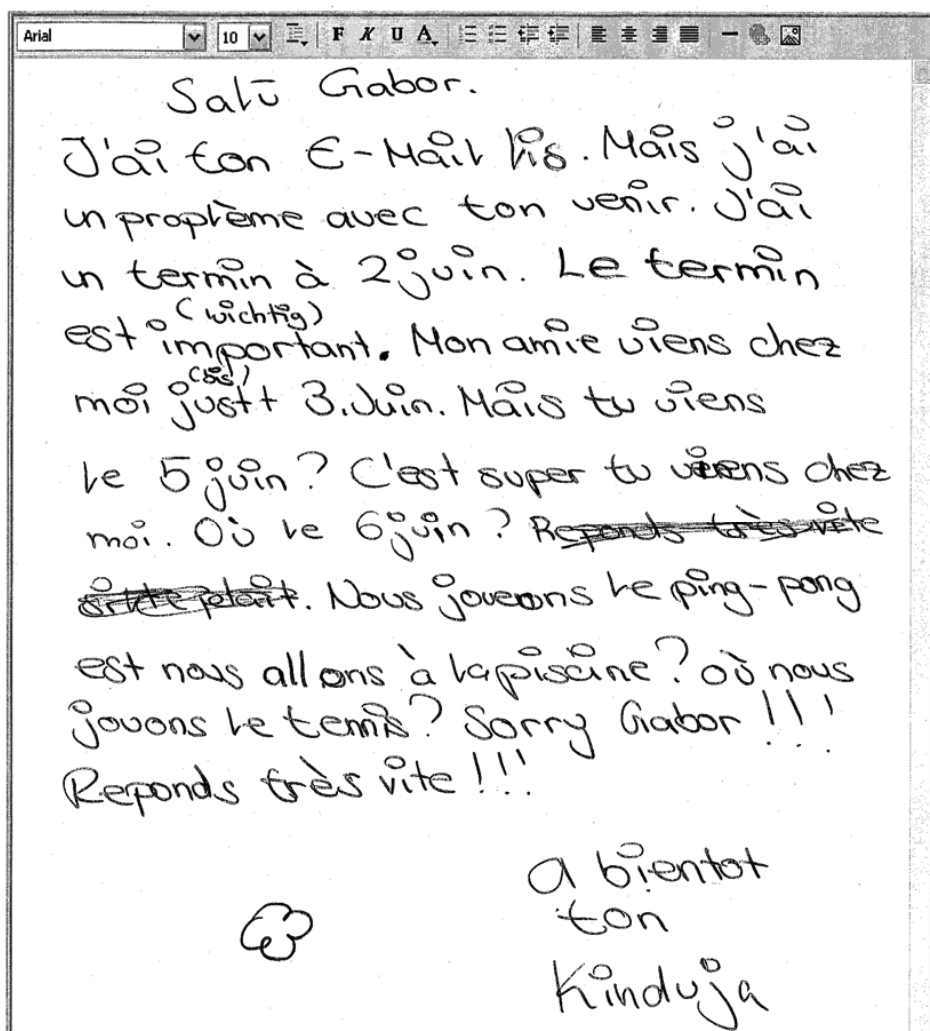 Arial 10 F K U A
Salū Gabor.
J'ai ton E-Mail lis. Mais j'ai
un proptème avec ton venir. J'ai
un termin à 2 juin. Le termin
(wichtig)
est important. Mon amie viens chez
(bis)
moi justt 3. Juin. Mais tu viens
le 5 juin? C'est super tu viens chez
moi. Où le 6 juin? Reponds très vite
. Nous joueons le ping-pong
est nous allons à la piscine? où nous
jouons le tennis? Sorry Gabor!!!
Reponds très vite!!!
a bientot
ton
Kinduja